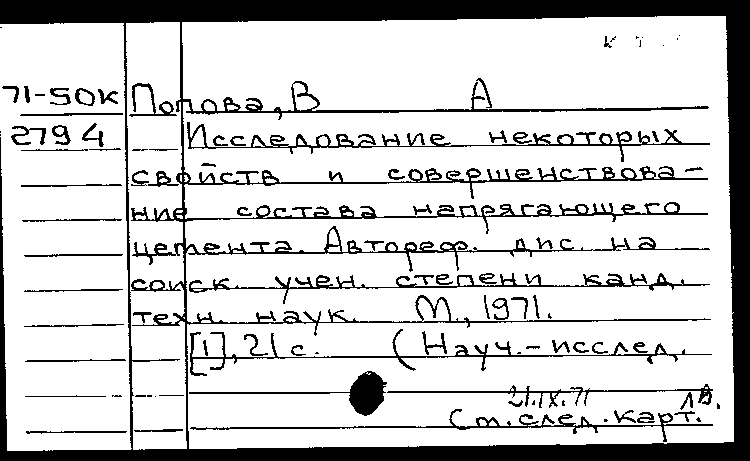 71-50К Попова, В А
2794 Исследование некоторых
свойств и совершенствова-
ние состава напрягающего
цемента. Автореф. дис. на
соиск. учен. степени канд.
техн. наук. М., 1971.
[1], 21 с. (Науч.-исслед.
21.IX.71
См. след. карт.